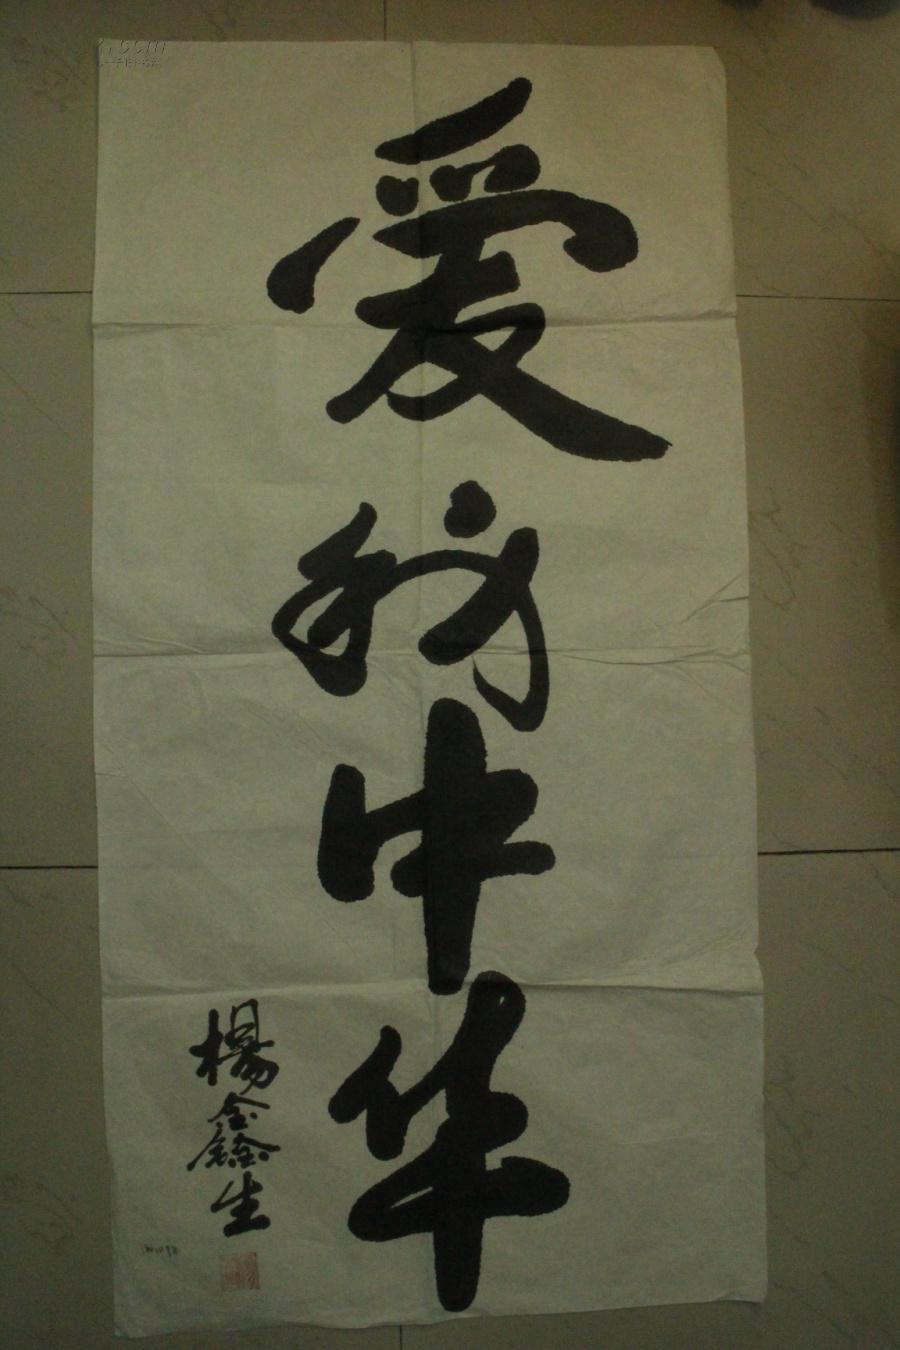 爱我中华
楊鑫生